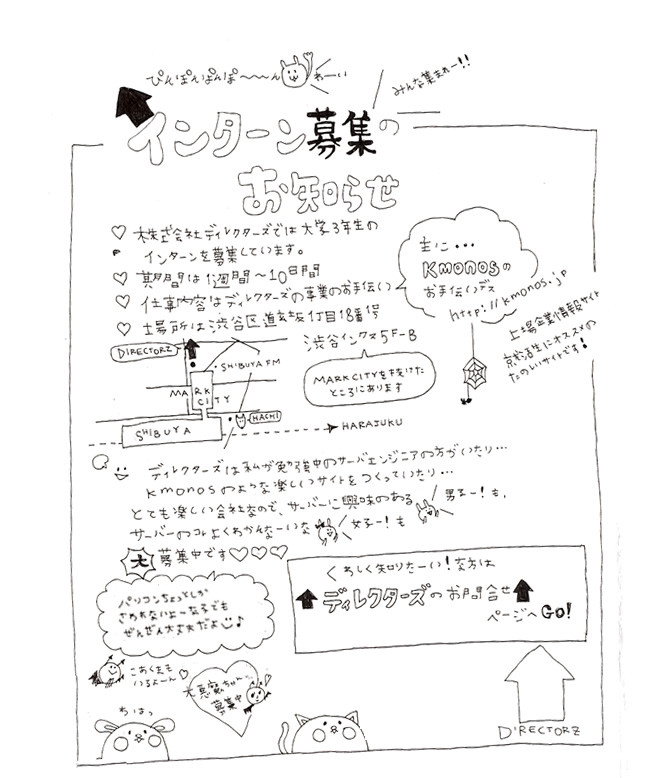 ぴんぽんぱんぽ〜〜〜ん
わーい
みんな集まれー!!
インターン募集の
お知らせ
♡ 株式会社ディレクターズでは大学3年生の
インターンを募集しています。
♡ 期間は1週間〜10日間
♡ 仕事内容はディレクターズの事業のお手伝い
♡ 場所は渋谷区道玄坂1丁目18番1号
渋谷インクス5F-B
主に・・・
Kmonosの
お手伝いデス
http://kmonos.jp
上場企業情報サイト
就活生にオススメの
たのしいサイトです!
DIRECTORZ
SHIBUYA FM
MARK
CITY
HACHI
SHIBUYA
HARAJUKU
MARK CITYをぬけた
ところにあります
ディレクターズは私が勉強中のサーバエンジニアの方がいたり…
kmonosのような楽しいサイトをつくっていたり…
とても楽しい会社なので、サーバーに興味のある
男子ー!も、
サーバーのコトよくわかんなーいな
女子ー!も
大募集中です♡♡♡
パソコンちょっとしか
さわれないよーな子でも
ぜんぜん大丈夫だよ♪
くわしく知りたーい!な方は
ディレクターズのお問合せ
ページへGO!
こあくまも
いるよーん
大悪魔ちゃん
募集中
ちはっ
DIRECTORZ